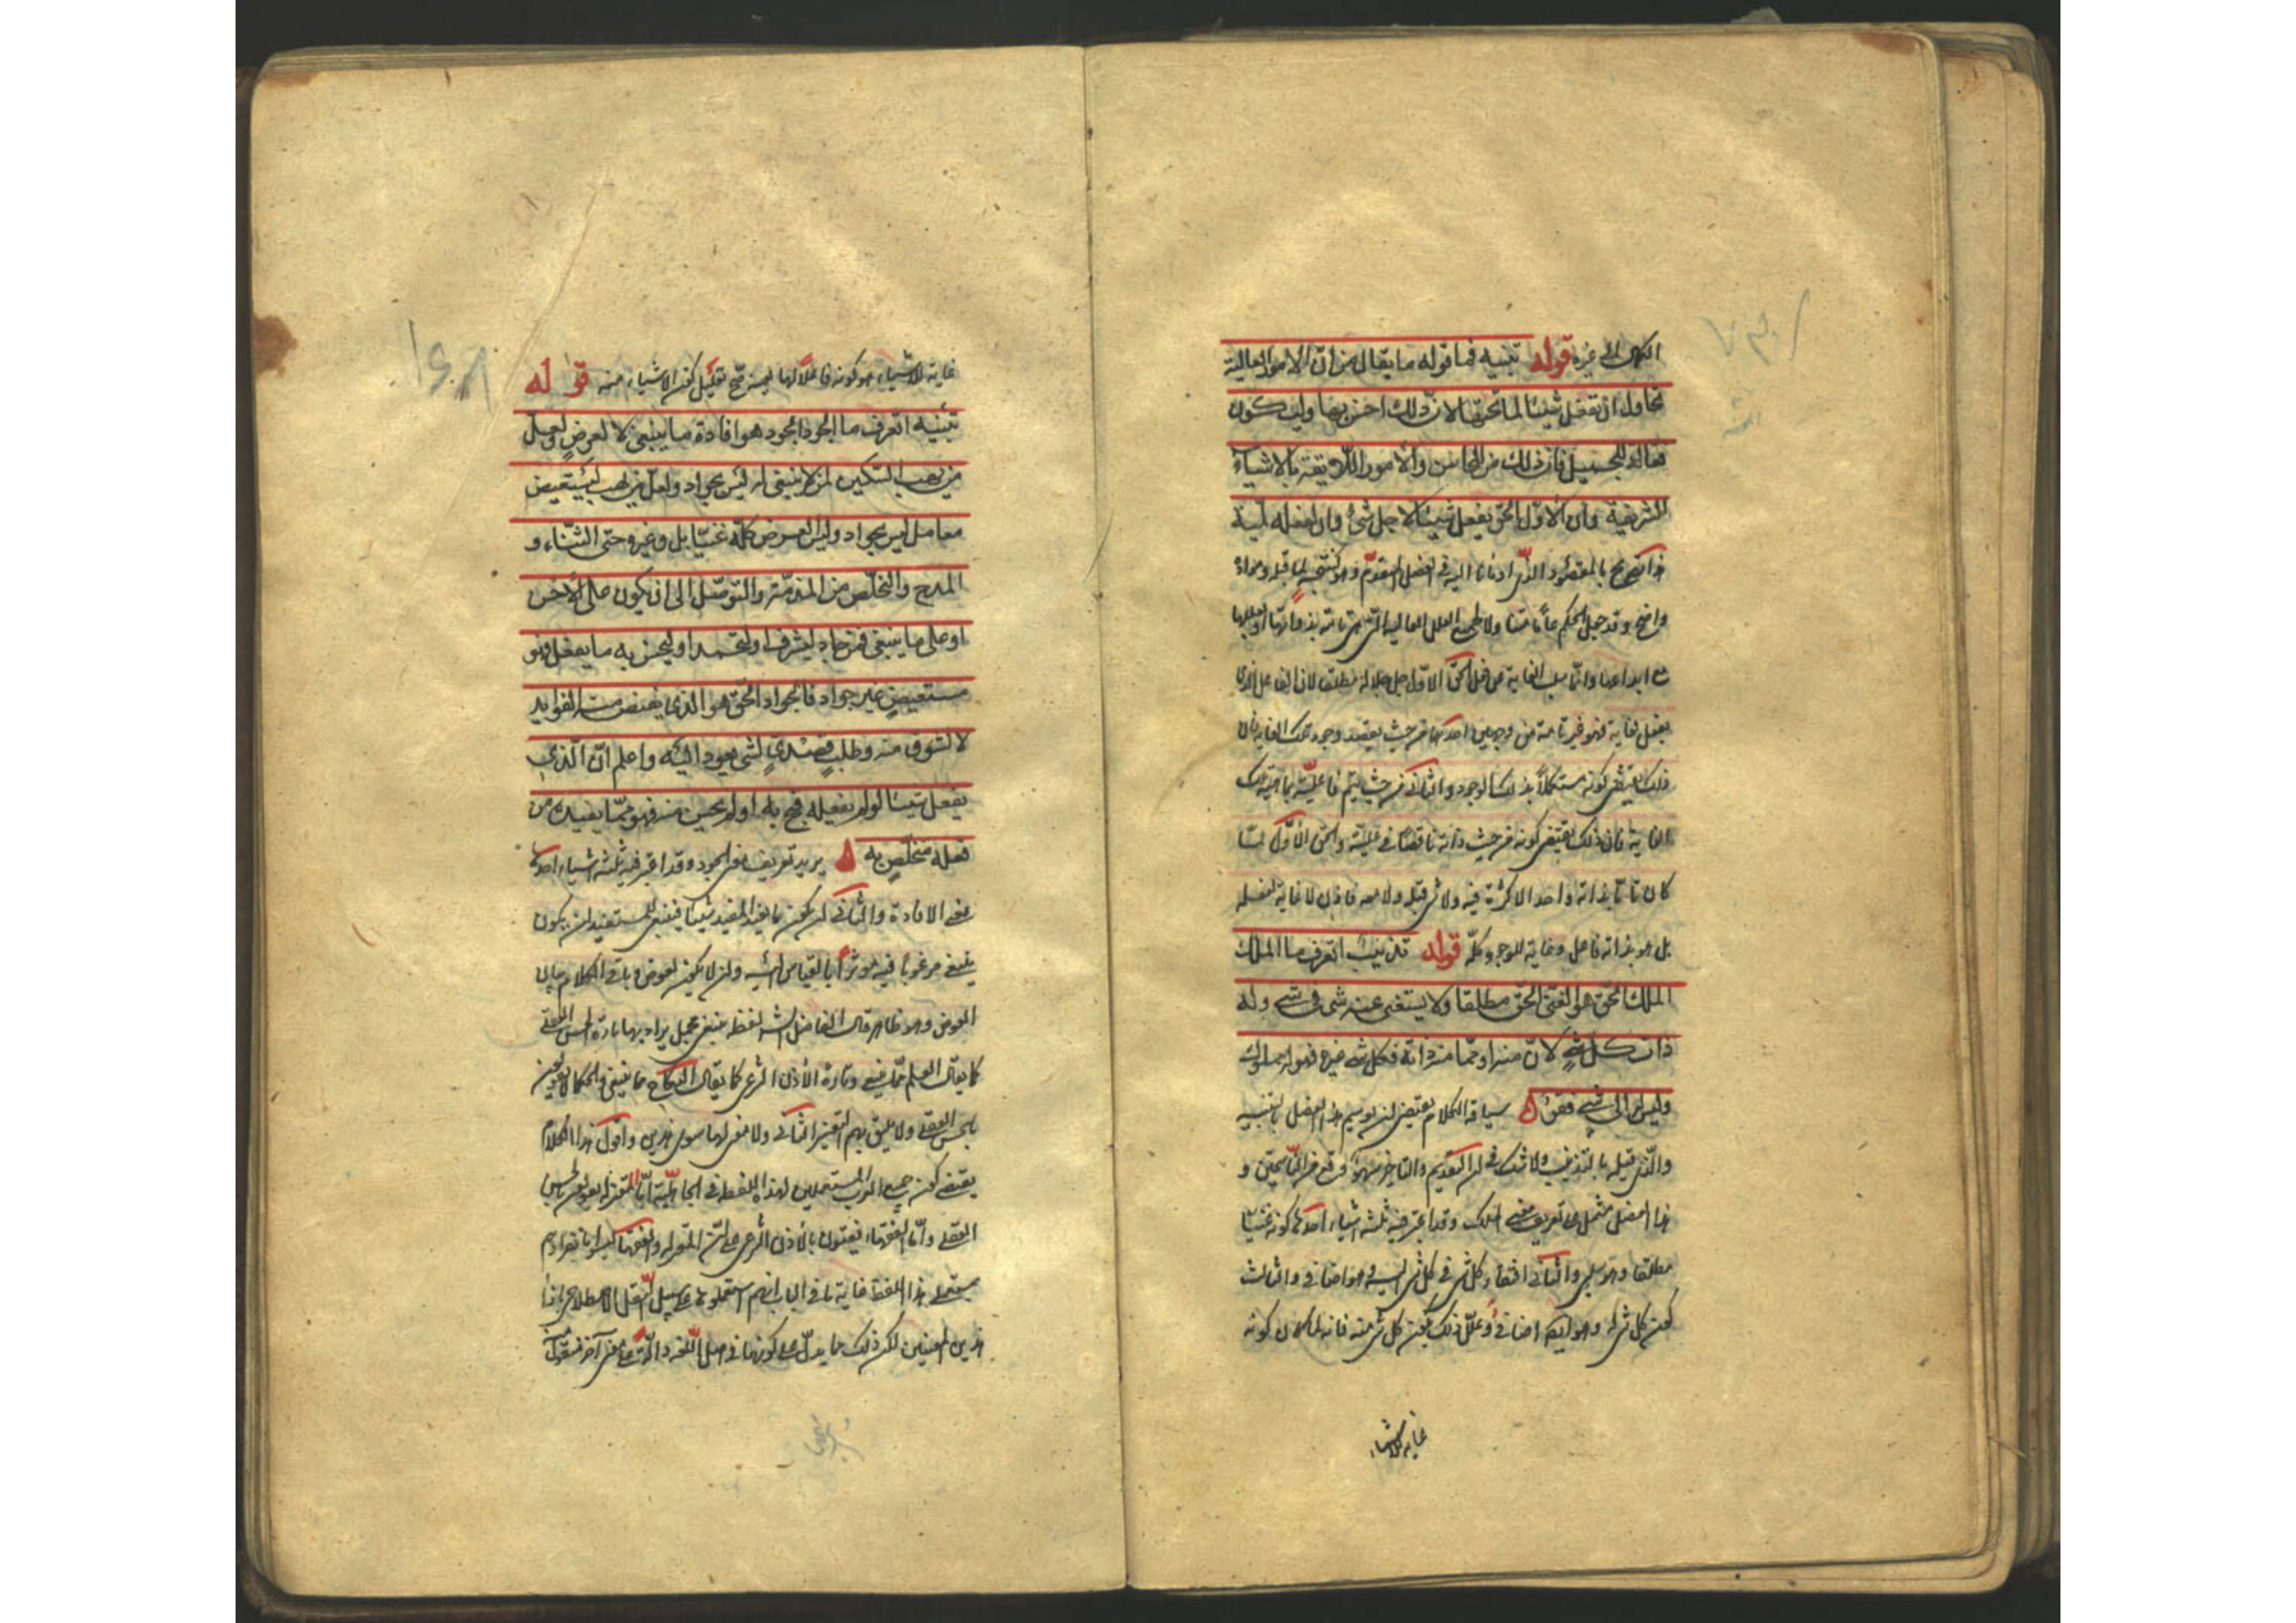 الكمال الى غيره قوله تنبيه فما اقبح ما يقال من ان الامور العالية
تحاول ان تفعل شيئا لما تحتها لان ذلك احسن بها وليكون
فعالة للجميل فان ذلك من المحاسن والامور اللايقة بالاشياء
الشريفة وان الاول الحق يفعل شيئا لاجل شئ وان لفعله لمية
هذا تصريح بالمقصود الذى اومأنا اليه فى الفصل المتقدم وهو كنتيجة لما قبله ومراده
واضح وقد جعل الحكم عاما متناولا لجميع العلل العالية التى هى تامة بذواتها او بعللها
مع ابداعها وانما سلب الغاية عن فعل الحق الاول جل جلاله مطلقا لان الفاعل الذى
يفعل لغاية فهو غير تام من وجهين احدهما من حيث يقصد وجود تلك الغاية فان
ذلك يقتضى كونه مستكملا بذلك الوجود والثانى من حيث يتم فاعليته بماهية تلك
الغاية فان ذلك يقتضى كونه من حيث ذاته ناقصا فى عليته والحق الاول لما
كان تاما بذاته واحدا لا كثرة فيه ولا شئ قبله ولا معه فاذن لا غاية لفعله
بل هو بذاته فاعل وغاية للوجود كله قوله تذنيب اتعرف ما الملك
الملك الحق هو الغنى الحق مطلقا ولا يستغنى عنه شئ فى شئ وله
ذات كل شئ لان منه او مما منه ذاته فكل شئ غيره فهو له مملوك
وليس له الى شئ فقر سياقة الكلام يقتضى ان يوسم هذا الفصل بالتنبيه
والذى قبله بالتذنيب ولا شك فى ان التقديم والتاخير سهو وقع من الناسخين و
هذا الفصل مشتمل على تعريف معنى الملك وقد اعتبر فيه ثلثة اشياء احدها كونه غنيا
مطلقا وهو سلبى والثانى افتقار كل شئ فى كل شئ اليه وهو اضافى والثالث
كون كل شئ له وهو ايضا اضافى وعلل ذلك بكون كل شئ منه فانه لما كان كونه
غاية للاشياء
غاية للاشياء هو كونه فاعلا لها بعينه صح تعليل كون الاشياء منه قوله
تنبيه اتعرف ما الجود الجود هو افادة ما ينبغى لا لعوض ولعل
من يهب السكين لمن لا ينبغى له ليس بجواد ولعل من يهب ليستعيض
معامل ليس بجواد وليس العوض كله عينا بل وغيره حتى الثناء و
المدح والتخلص من المذمة والتوصل الى ان يكون على الاحسن
او على ما ينبغى فمن جاد ليشرف او ليحمد او ليحسن به ما يفعل فهو
مستعيض غير جواد فالجواد الحق هو الذى يفيض منه الفوايد
لا لشوق منه وطلب قصدى لشئ يعود اليه واعلم ان الذى
يفعل شيئا لو لم يفعله قبح به او لم يحسن منه فهو مما يفيده من
فعله متخلص به يريد تعريف معنى الجود وقد اعتبر فيه ثلثة اشياء احدها
معنى الافادة والثانى ان يكون ما يفيد المفيد شيئا ينبغى للمستفيد ان يكون
ينبغى مرغوبا فيه مؤثرا بالقياس اليه وان لا يكون لعوض وباقى الكلام بيان
العوض وهو ظاهر قال الفاضل الشارح لفظة ينبغى مجمل يراد بها تارة الحسن العقلى
كما يقال العلم مما ينبغى وتارة الاذن الشرعى كما يقال النكاح مما ينبغى والحكماء لا يقولون
بالحسن العقلى ولا يليق بهم التفسير الثانى ولا معنى لها سوى هذين واقول هذا الكلام
يقتضى كون جميع العرب المستعملين لهذا اللفظ فى الجاهلية اما المعتزلة يقولون بالحسن
العقلى واما الفقهاء يفتون بالاذن الشرعى على ان المعتزلة والفقهاء ليسوا بانفرادهم
يستعمل هذا اللفظ غاية ما فى الباب انهم استعملوها على سبيل النقل الاصطلاحى بازاء
هذين المعنيين لكن ذلك مما يدل على كونها فى اصل اللغة دالة على معنى آخر منقول